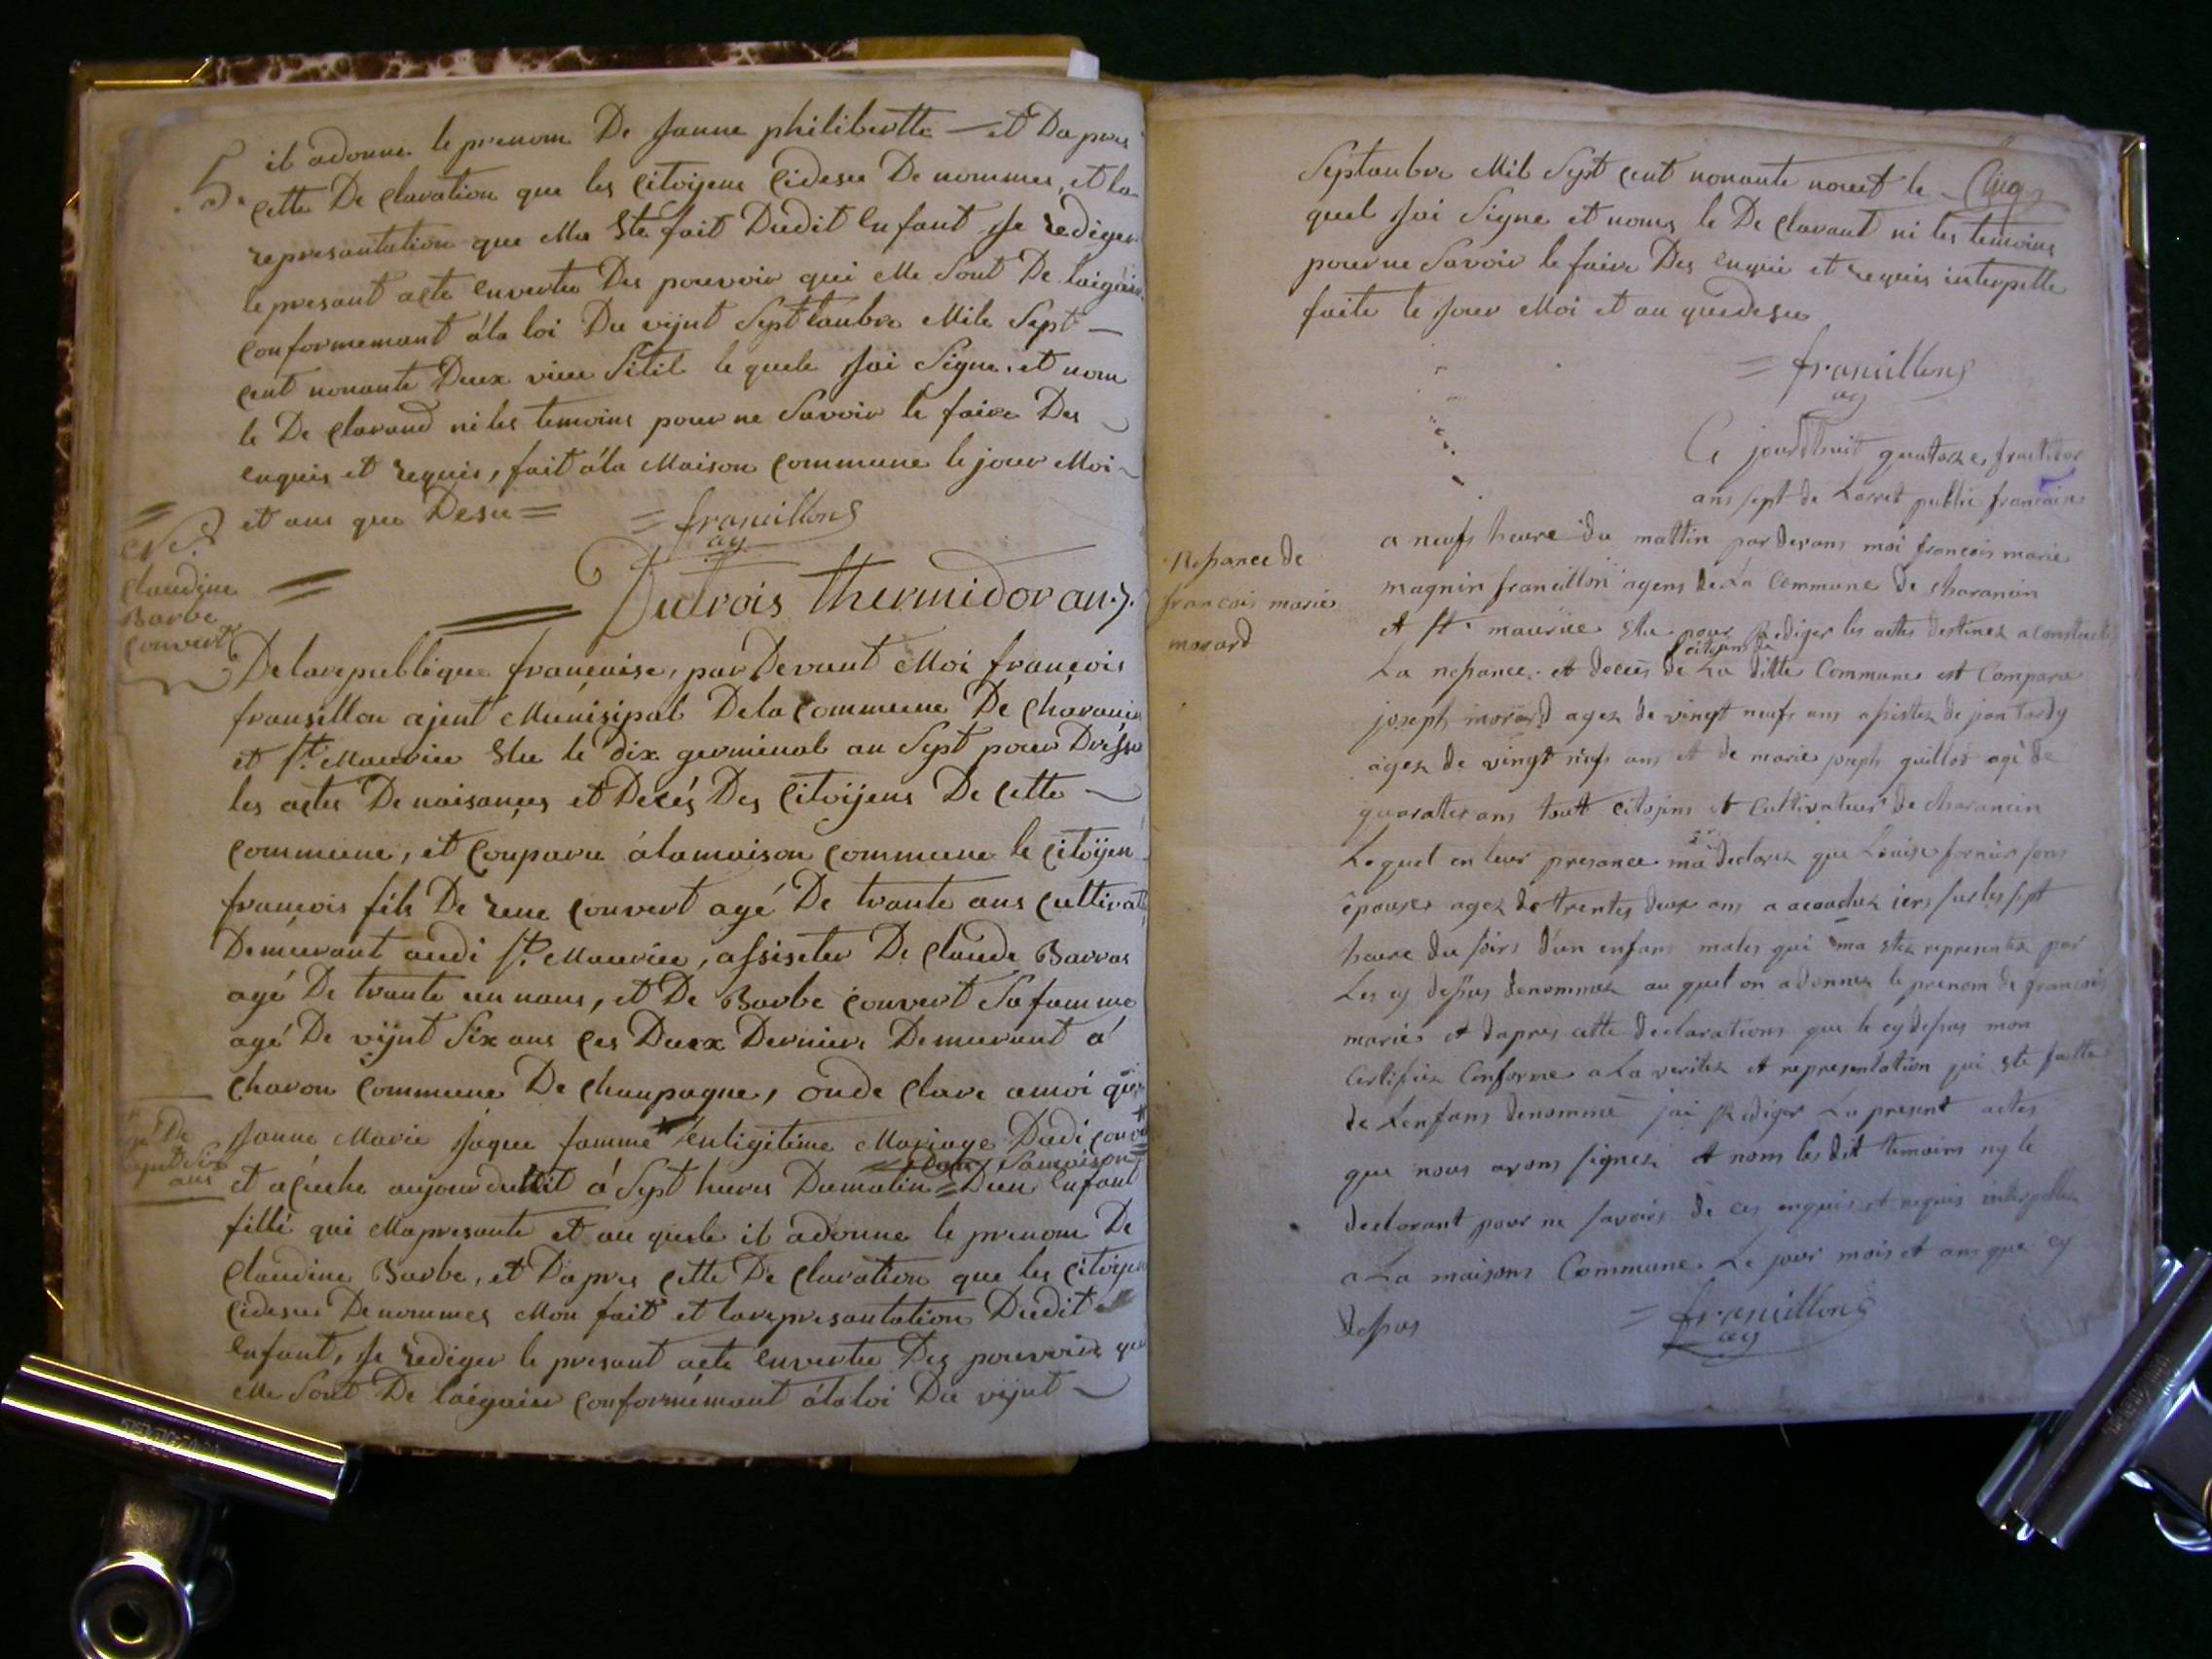 5.
il adonne le prenom De Janne philibertte — et Dapres
cette De claration que les Citoijens Cidesu De nommes, et la
representation que Ma Ste fait Dudit Enfant Je Rediger
le presant acte Envertu Des pouvoir qui Me Sont De laigair
Conformemant á la loi Du vijnt Septtanbre Mile Sept —
Cent nonante Deux vieu Stil le quele Jai Signe, et nom
le De clarand ni les temoins pour ne Savoir le faire Des
enquis et Requis, fait á la Maison Commune le jour Moi
et ans que Desu =
= francillons
ag
Ne.
Claudine
Barbe
Convert
Dutrois thermidor an .7.
Delarepublique française, par Devant Moi françois
fransillon ajent Munisipal Dela Commune De Charanci
et St. Maurice Elu le Dix germinal an Sept pour Dresse
les actes De naisances et Decés Des Citoijens De Cette —
Commune, et Conparu á lamaison Commune le Citoijen
françois fils De Rene Convert agé De trante ans Cultivat
Demeurant audi St. Maurice, assister De Claude Barras
agé De trante un nans, et De Barbe Convert Sa famme
agé De vijnt Six ans Ces Deux Derniers Demeurant á
Charon Commune De Chanpagne, onde Clare amoi que
Janne Marie Jaque famme Enligitime Mariage Dudi Conv
agé De
vijnt Six
ans
Dans Samaison
et acuche aujourduhit á Sept heures Dumatin = Dun Enfant
fille qui Mapresante et au quele il adonne le prenom De
Claudine Barbe, et Dapres Cette De claration que les Citoijen
Cidesus Denommes Mon fait et larepresantation Dudit
Enfant, Je Rediger le presant acte Envertu Des pouvoir qui
Me Sont De laigair Conformémant álaloi Du vijnt —
Septanbre Mil Sept Cent nonante noeuf le Cinq
quel Jai Signe et noms le De Clarant ni les temoins
pour ne Savoir le faire Des Enquis et Requis interpelle
faite le Jour Moi et an quedesu
= francillons
ag
Ce jourdhuit quatorze fructidor
ans sept de Larret public francoise
Nessance de
francois marie
morard
a neufs heure du mattin par devans moi francois marie
magnin francillon agens de La Commune de charancin
et St. maurice Elu pour Rediger les actes destinez a constate
citoyens de
La nessance et deces de La ditte Commune est Comparu
joseph morard agez de vingt neufs ans assistez de jean tardy
agez de vingt neufs ans et de marie joseph guillot agé de
quarantes ans toutt citojens et Cultivateur de charancin
Lequel en leur presance ma declarez que Louise fornier sons
épouse agez de trentes deux ans a acouchez iers sur les sept
heure du soirs dun enfans males qui ma Etez representez par
Les cy dessus denommez au quel on a donnez le prenom de francois
marie et dapres cette declarations que le cy dessus mon
Certifiez Conforme a La veritez et representation qui Ete faitte
de Lenfans denommé jai Rediger La present actes
que nous avons signez et nom les dit temoins ny le
declarant pour ne savoirs de ces enquis et requis interpellez
a La maisons Commune Le jour mois et ans que cy
dessus
= francillons
ag